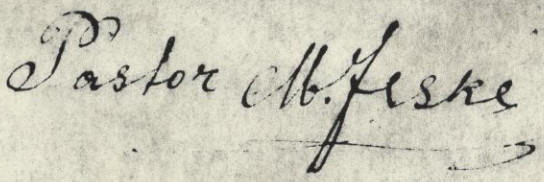 Pastor M. Jeske